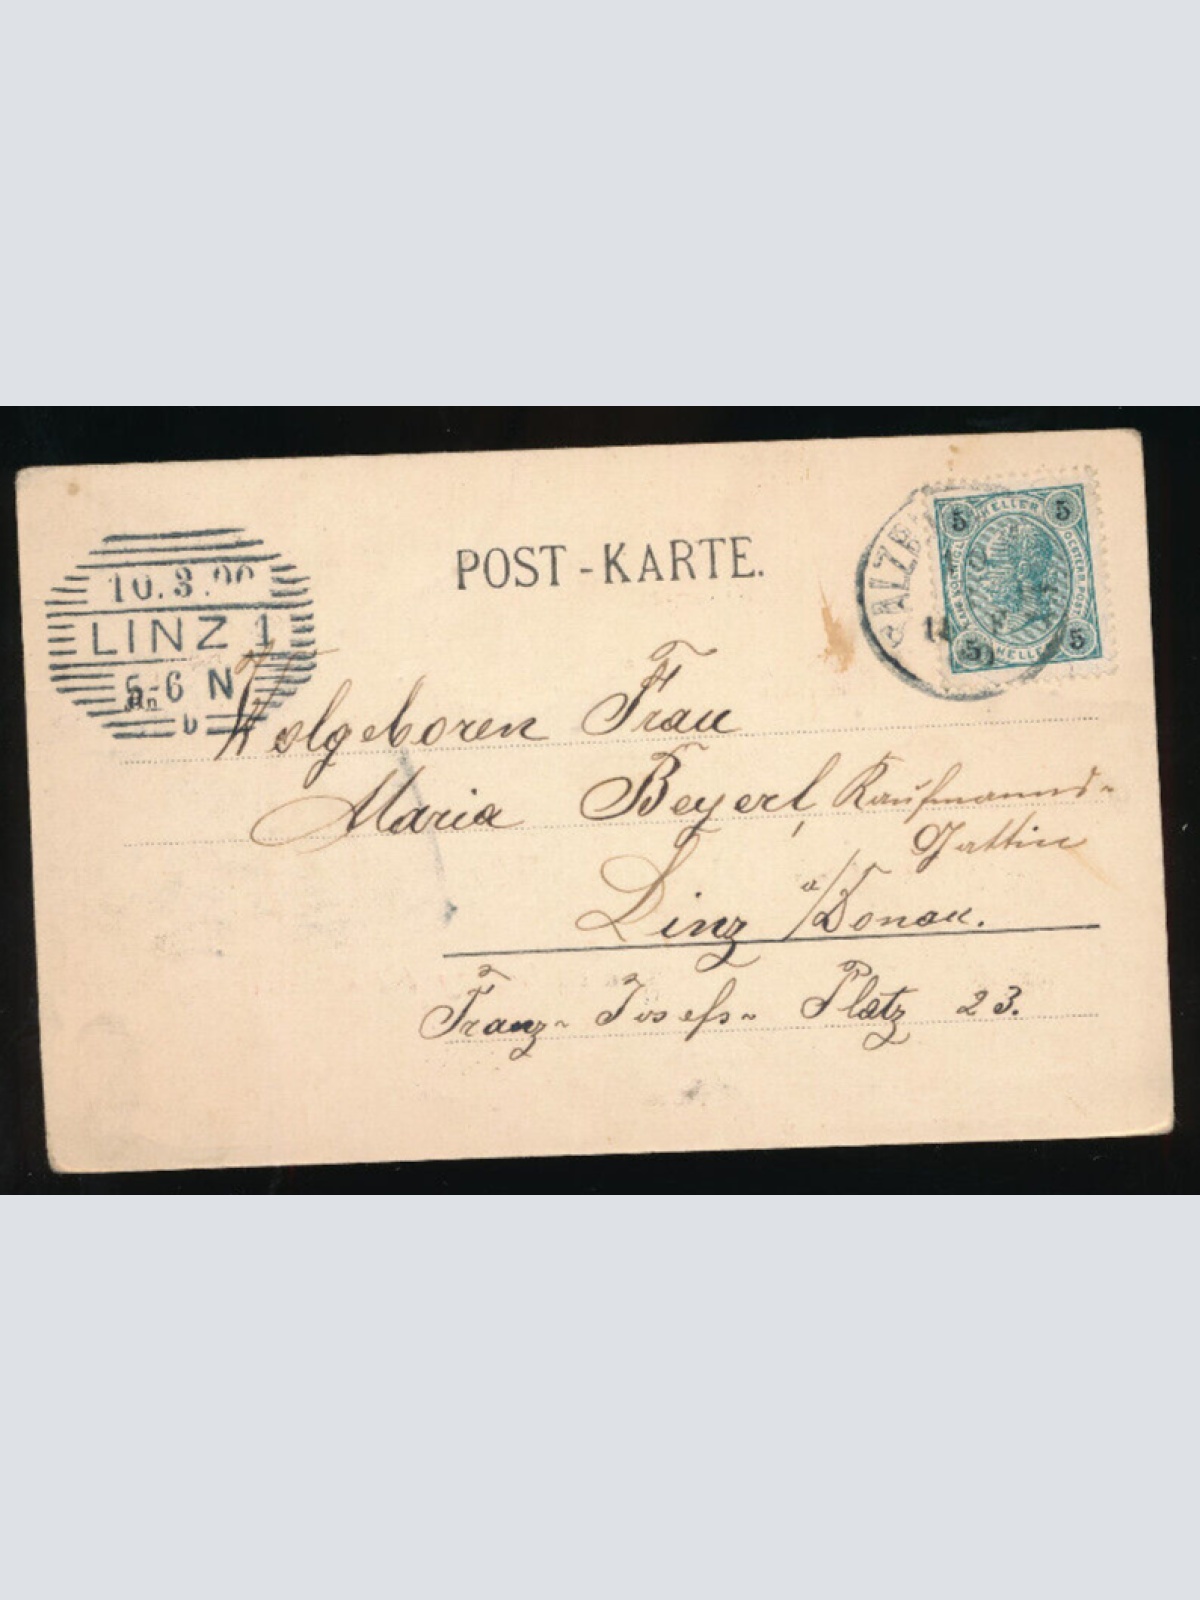 POST-KARTE.
SALZB
5 HELLER 5
KAIS. KOENIGL. OESTERR. POST
5 HELLER 5
10.3.00
LINZ 1
5-6 N
b
An
Wolgeboren Frau
Maria Beyerl, Kaufmanns-
Gattin
Linz a/Donau.
Franz- Josefs- Platz 23.